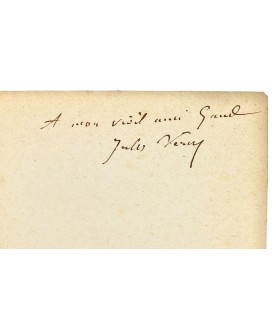 A mon vieil ami
Jules Verne